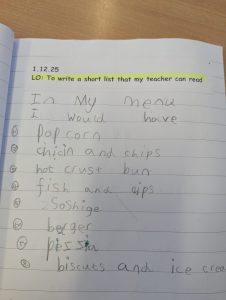 1.12.25
LO: To write a short list that my teacher can read
In My menu
I would have
① popcorn
② chicin and chips
③ hot crust bun
④ fish and cips
⑤ Soshige
⑥ berger
⑦ pissia
⑧ biscuts and ice crea